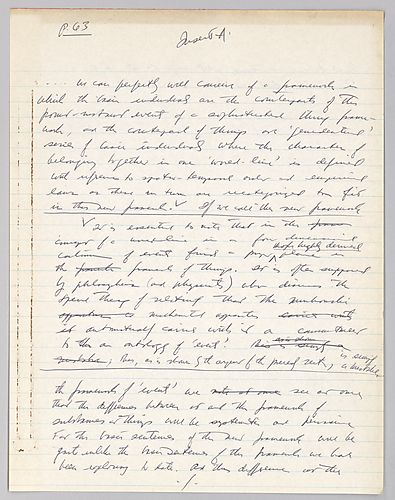 p. 63
Insert A.
... we can perfectly well conceive of a framework in
which the basic individuals are the counterparts of the
point-instant event of a sophisticated thing frame-
work, and the counterpart of things are 'genidentical'
series of basic individuals where the character of
belonging together in one 'world-line' is defined
with reference to spatio-temporal order and empirical
laws as these in turn are recategorized to fit
in this new framework. If we call this new framework
It is essential to note that in this
concept of a world-line in a four dimensional
continuum of events finds a place in
the framework of things. It is often supposed
by philosophers (and physicists) who discuss the
special theory of relativity that the Minkowski
it automatically carries with it a commitment
to the an ontology of 'events'. This is simply
mistake; this, as is shown by the argument of the present section, is simply a mistake
the framework of 'events' we see at once
that the differences between it and the framework of
substances or things will be systematic and pervasive
For the basic sentences of the new framework will be
quite unlike the basic sentences of the framework we have
been exploring to date. And this difference